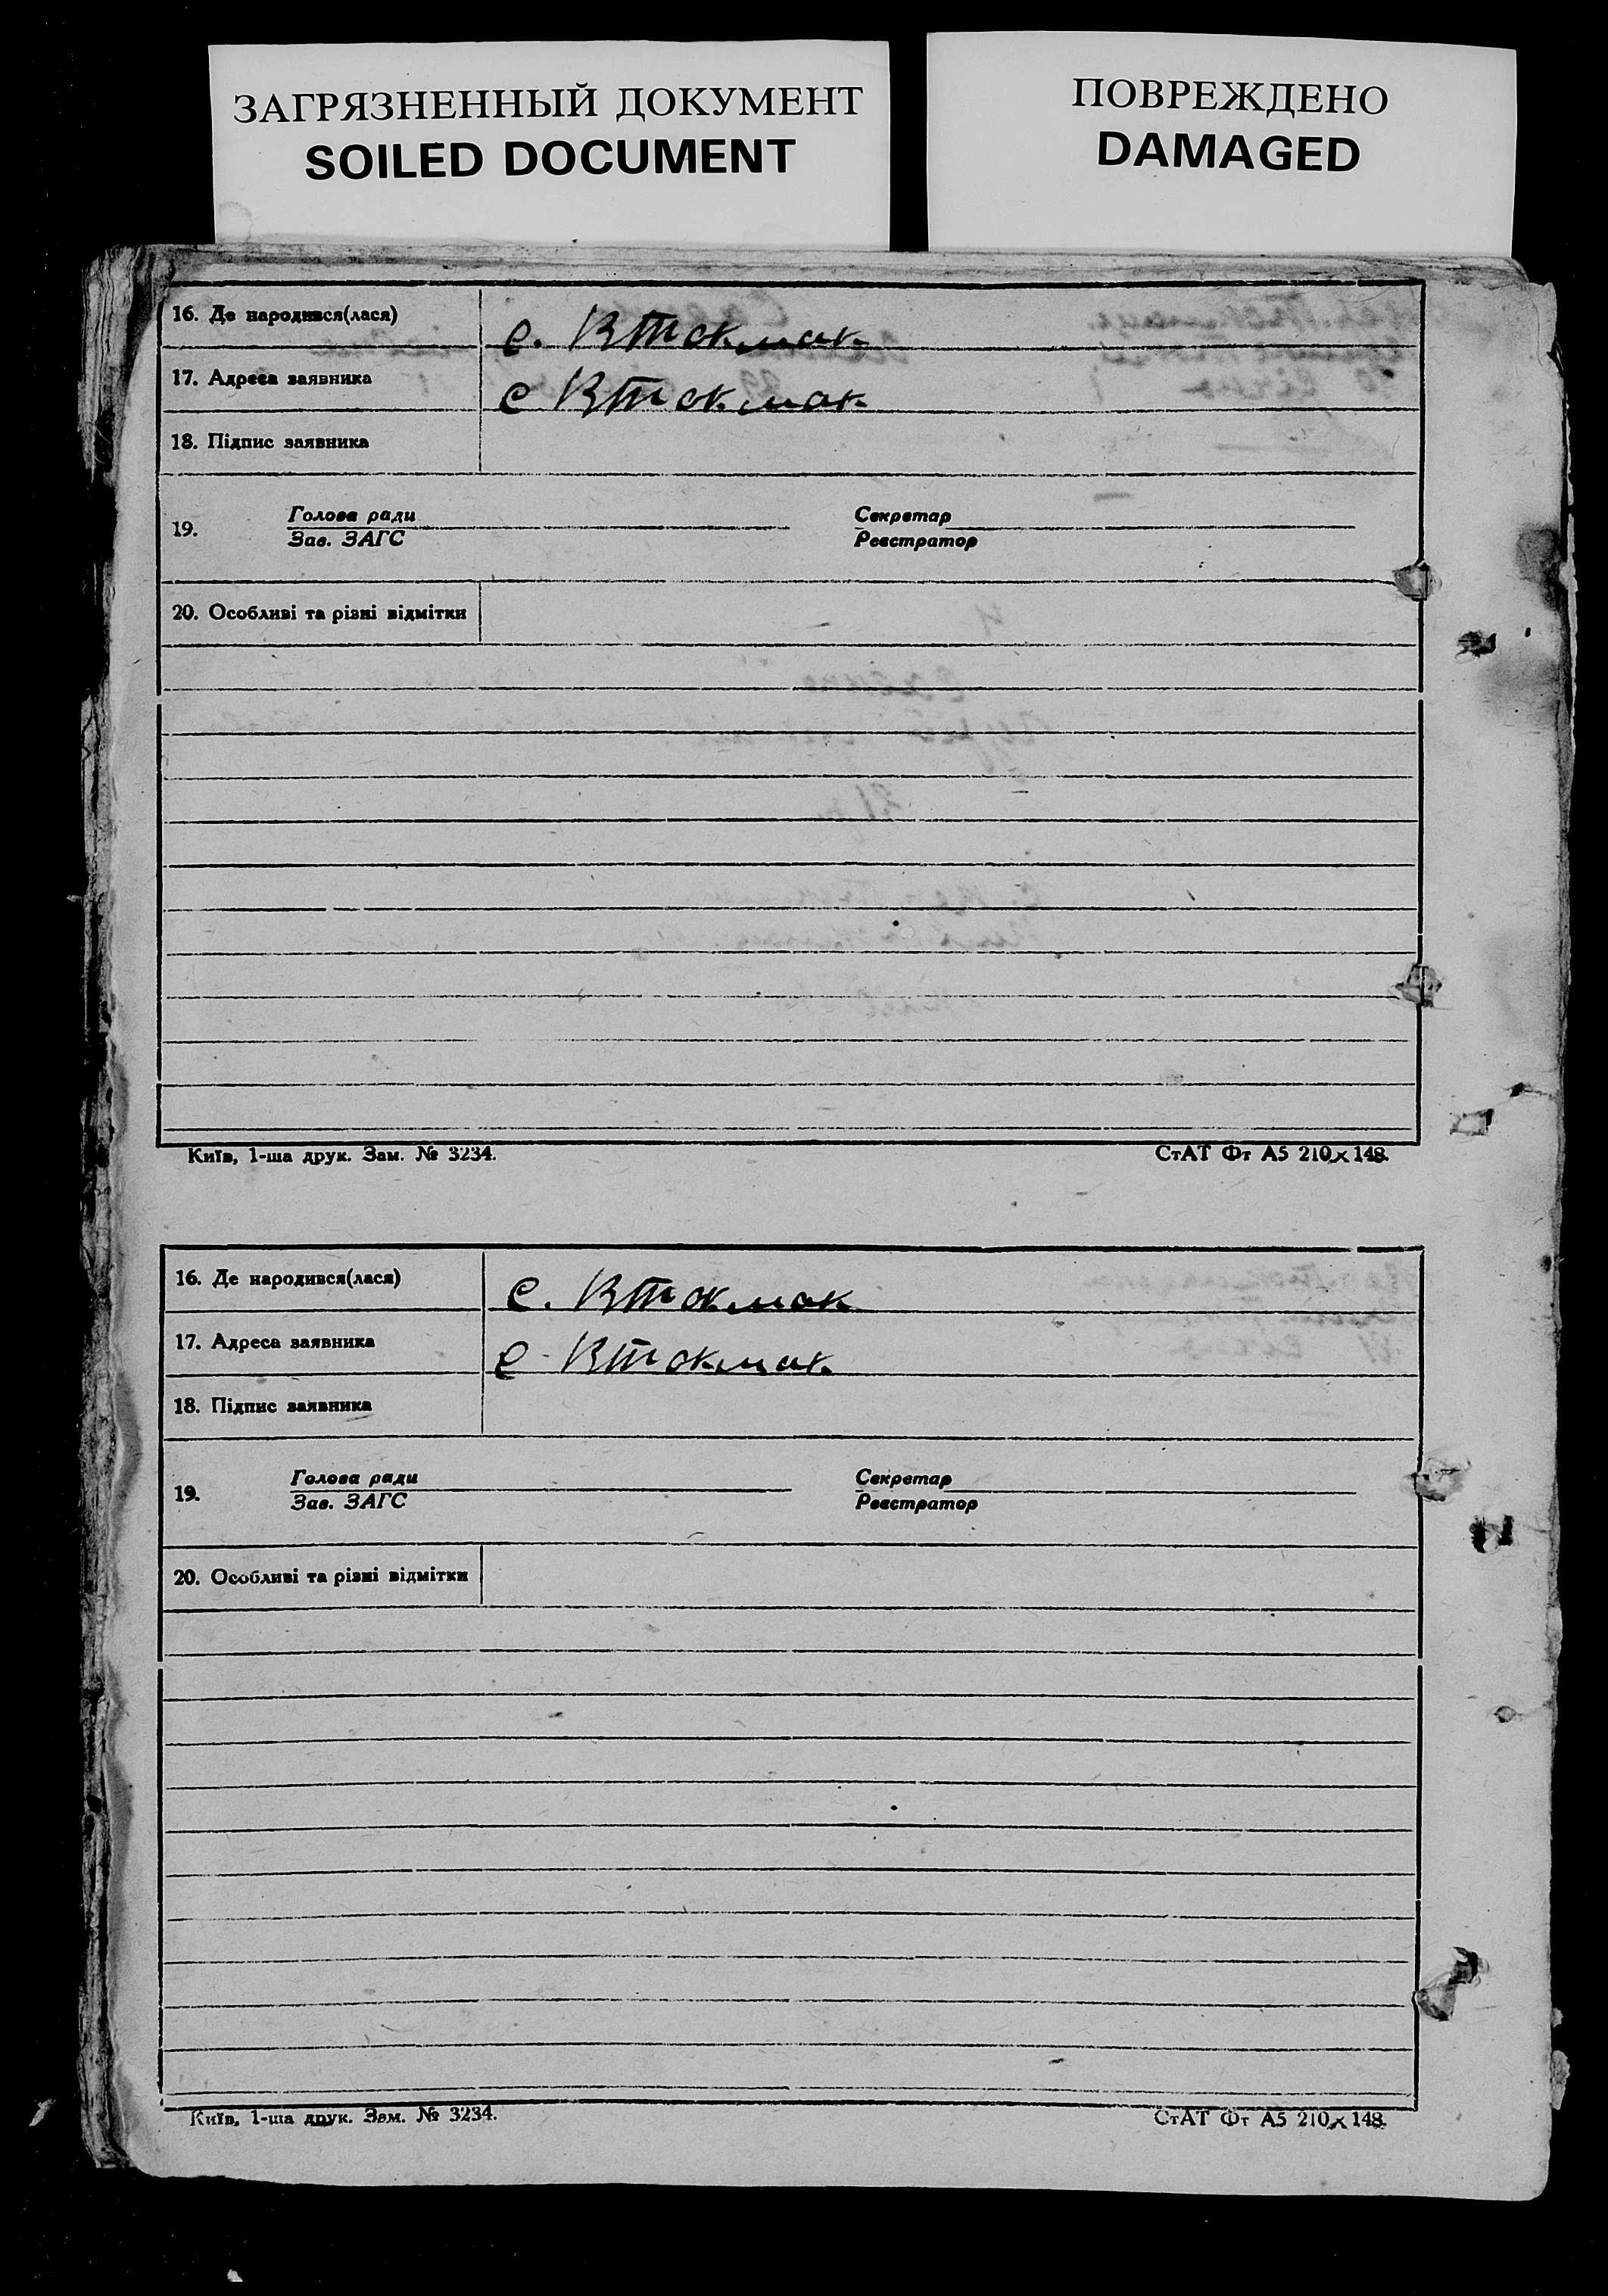 ЗАГРЯЗНЕННЫЙ ДОКУМЕНТ
SOILED DOCUMENT
ПОВРЕЖДЕНО
DAMAGED
16. Де народився(лася) с. ВТокмак
17. Адреса заявника с ВТокмак
18. Підпис заявника
19. Голова ради Секретар
Зав. ЗАГС Реєстратор
20. Особливі та різні відмітки
Київ, 1-ша друк. Зам. № 3234. СтАТ Фт А5 210×148.
16. Де народився(лася) с. ВТокмак
17. Адреса заявника с. ВТокмак
18. Підпис заявника
19. Голова ради Секретар
Зав. ЗАГС Реєстратор
20. Особливі та різні відмітки
Київ, 1-ша друк. Зам. № 3234. СтАТ Фт А5 210×148.